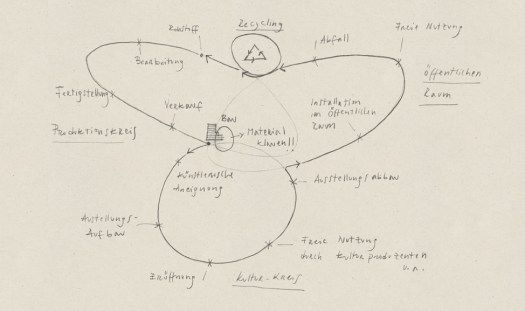 Rohstoff
Recycling
Abfall
Freie Nutzung
Bearbeitung
Öffentlichen
Raum
Fertigstellung
Verkauf
Installation
im öffentlichen
Raum
Produktionskreis
Bau
Material
klauen!!
Künstlerische
Aneignung
Ausstellungsabbau
Austellungs-
Aufbau
Freie Nutzung
durch Kulturproduzenten
u.a.
Eröffnung
Kultur-Kreis